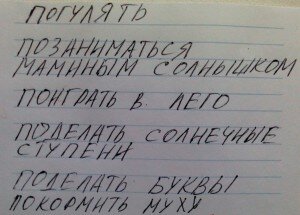 ПОГУЛЯТЬ
ПОЗАНИМАТЬСЯ
МАМИНЫМ СОЛНЫШКОМ
ПОИГРАТЬ В ЛЕГО
ПОДЕЛАТЬ СОЛНЕЧНЫЕ
СТУПЕНИ
ПОДЕЛАТЬ БУКВЫ
ПОКОРМИТЬ МУХУ